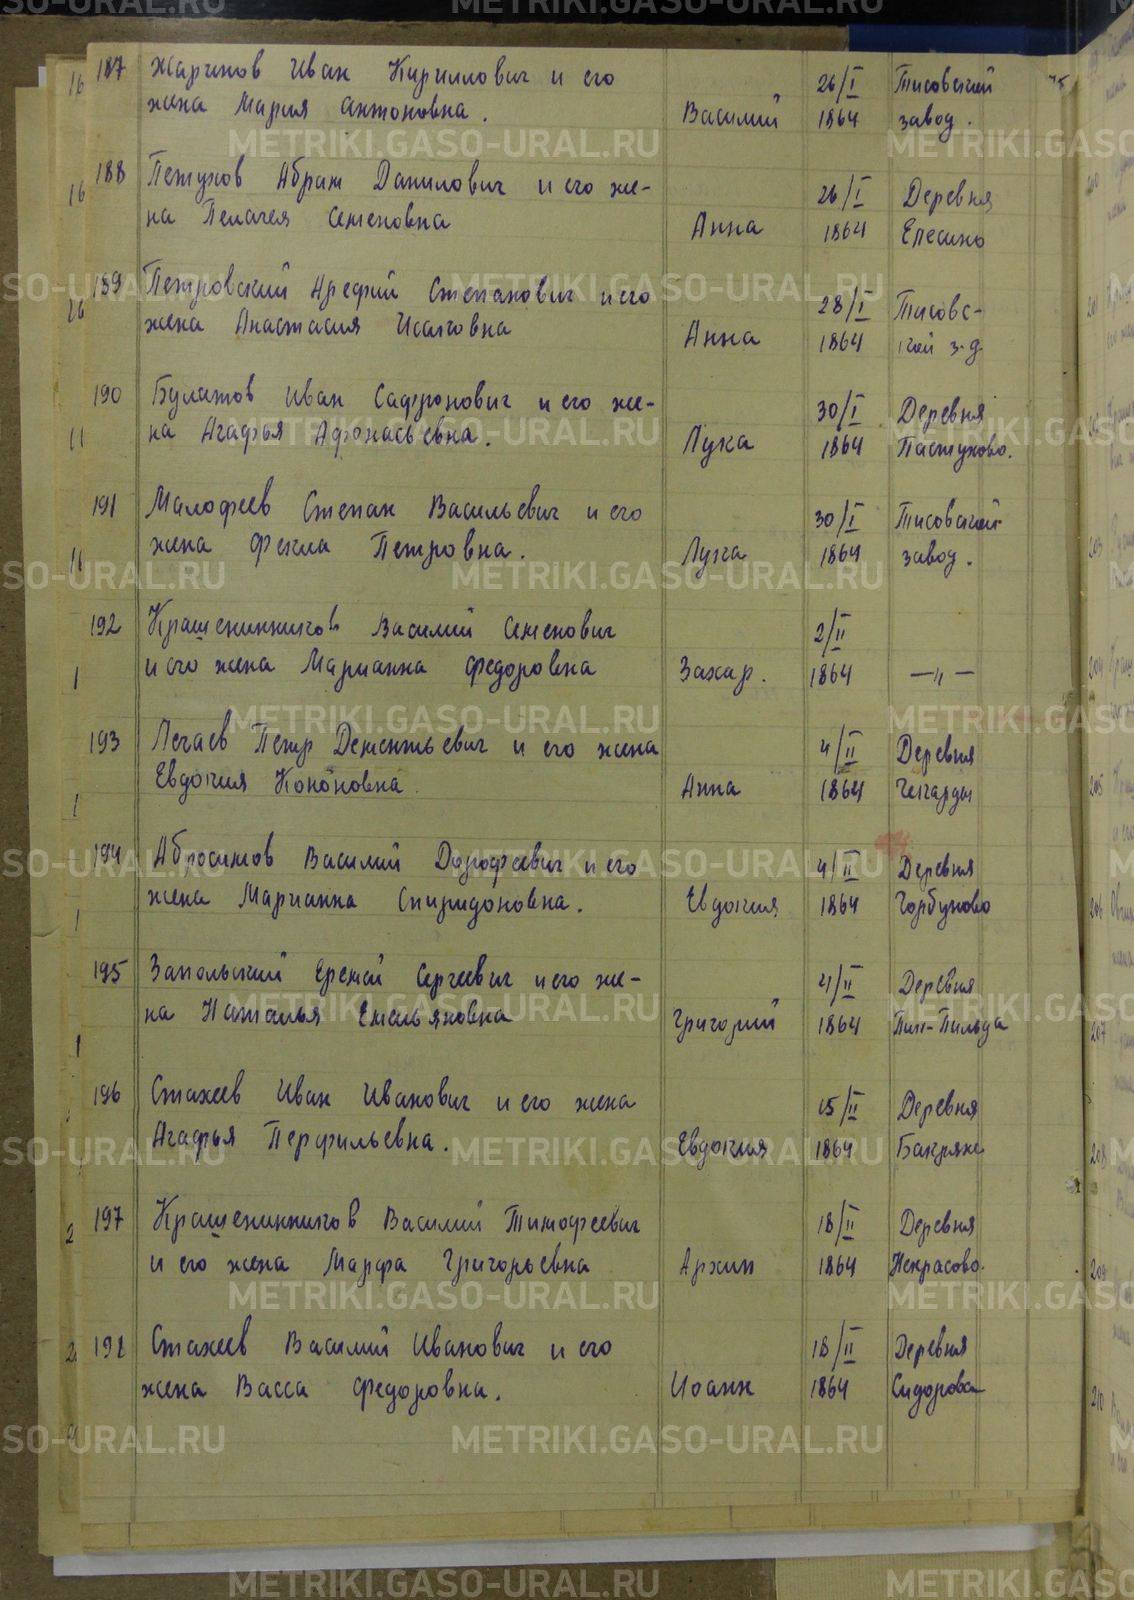 187 Жаринов Иван Кириллович и его
жена Мария Антоновна. Василий 26/I 1864 Тисовский завод.
188 Петухов Абрам Данилович и его же-
на Пелагея Семеновна Анна 26/I 1864 Деревня Елесино
189 Петровский Арефий Степанович и его
жена Анастасия Исаковна Анна 28/I 1864 Тисовс-
кий з-д
190 Булатов Иван Сафронович и его же-
на Агафья Афонасьевна. Лука 30/I 1864 Деревня Пастухово.
191 Малофеев Степан Васильевич и его
жена Фекла Петровна. Лука 30/I 1864 Тисовский завод.
192 Крашенинников Василий Семенович
и его жена Марианна Федоровна Захар. 2/II 1864 —"—
193 Легаев Петр Дементьевич и его жена
Евдокия Кононовна Анна 4/II 1864 Деревня Чекарды
194 Абросимов Василий Дорофеевич и его
жена Марианна Спиридоновна. Евдокия 4/II 1864 Деревня Горбуново
195 Запольский Еремей Сергеевич и его же-
на Наталья Емельяновна Григорий 4/II 1864 Деревня Пик-Пильда
196 Стахеев Иван Иванович и его жена
Агафья Перфильевна. Евдокия 15/II 1864 Деревня Бакряжс
197 Крашенинников Василий Тимофеевич
и его жена Марфа Григорьевна Архип 18/II 1864 Деревня Некрасово.
198 Стахеев Василий Иванович и его
жена Васса Федоровна. Иоанн 18/II 1864 Деревня Сидорова
METRIKI.GASO-URAL.RU